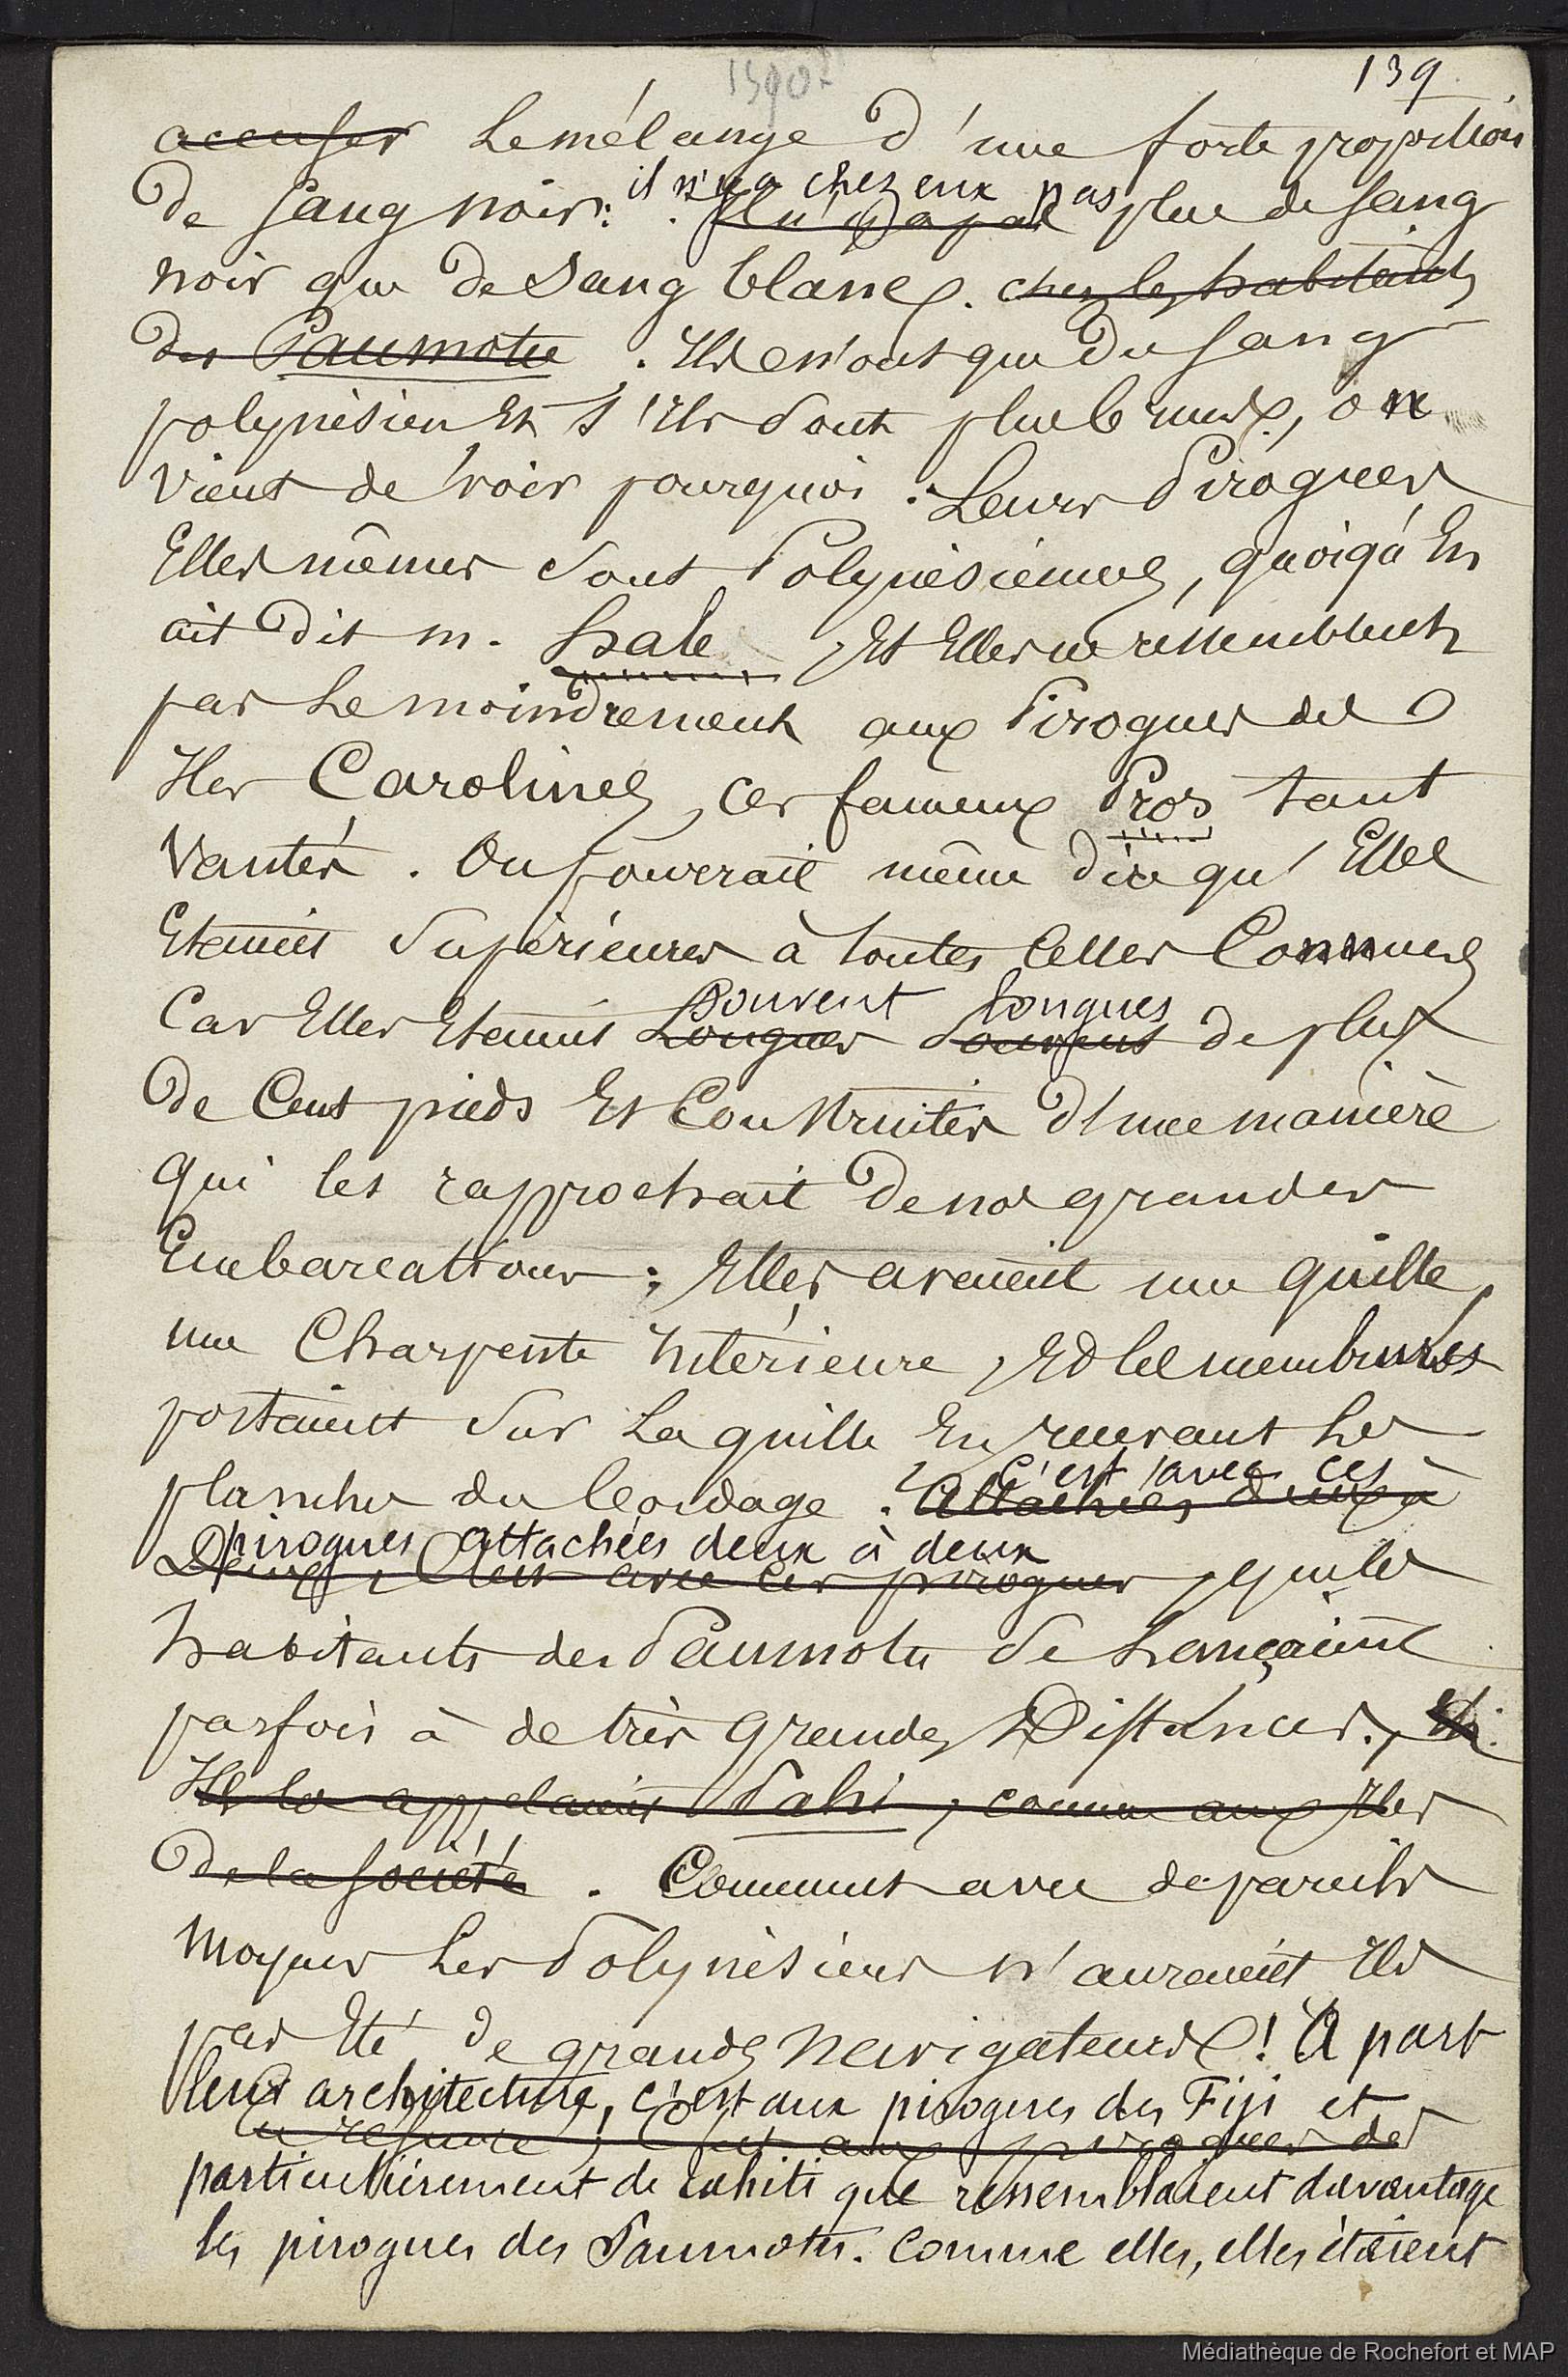 139
~~accuser~~ le mélange d'une forte proportion
il n'y a chez eux pas
de sang noir: ~~Il n'y a pas~~ plus de sang
noir que de sang blanc. ~~chez les habitants~~
~~des Paumotu~~. Ils n'ont que du sang
polynésien et s'ils sont plus bruns, on
vient de voir pourquoi. Leurs Pirogues
Elles mêmes sont Polynésiennes, quoiqu'En
ait dit M. Hale, Et Elles ne ressemblent
pas le moindrement aux Pirogues des
Iles Carolines, ces fameux Pros tant
Vantés. On pouvait même dire qu'Elles
Etaient Supérieures à toutes Celles Connues
souvent longues
Car Elles Etaient ~~Longues~~ ~~souvent~~ de plus
de Cent pieds Et Construites d'une manière
qui les rapprochait de nos grandes
Embarcations; Elles avaient une quille,
une Charpente intérieure, Et les membrures
portaient sur la quille En suivant les
c'est avec ces
planches du bordage. ~~Attachées deux à~~
pirogues attachées deux à deux
~~Deux, C'est avec ces pirogues~~, que les
habitants des Paumotu se lançaient
parfois à de très grandes Distances.
~~Ils les appelaient Pahi, comme aux Iles~~
~~de la Société~~. Comment avec de pareils
moyens les Polynésiens n'auraient Ils
pas Eté de grands Navigateurs! A part
leur architecture, c'est aux pirogues des Fiji et
~~En résumé, C'est aux pirogues des~~
particulièrement de Tahiti que ressemblaient davantage
les pirogues des Paumotu. Comme elles, elles étaient
Médiathèque de Rochefort et MAP